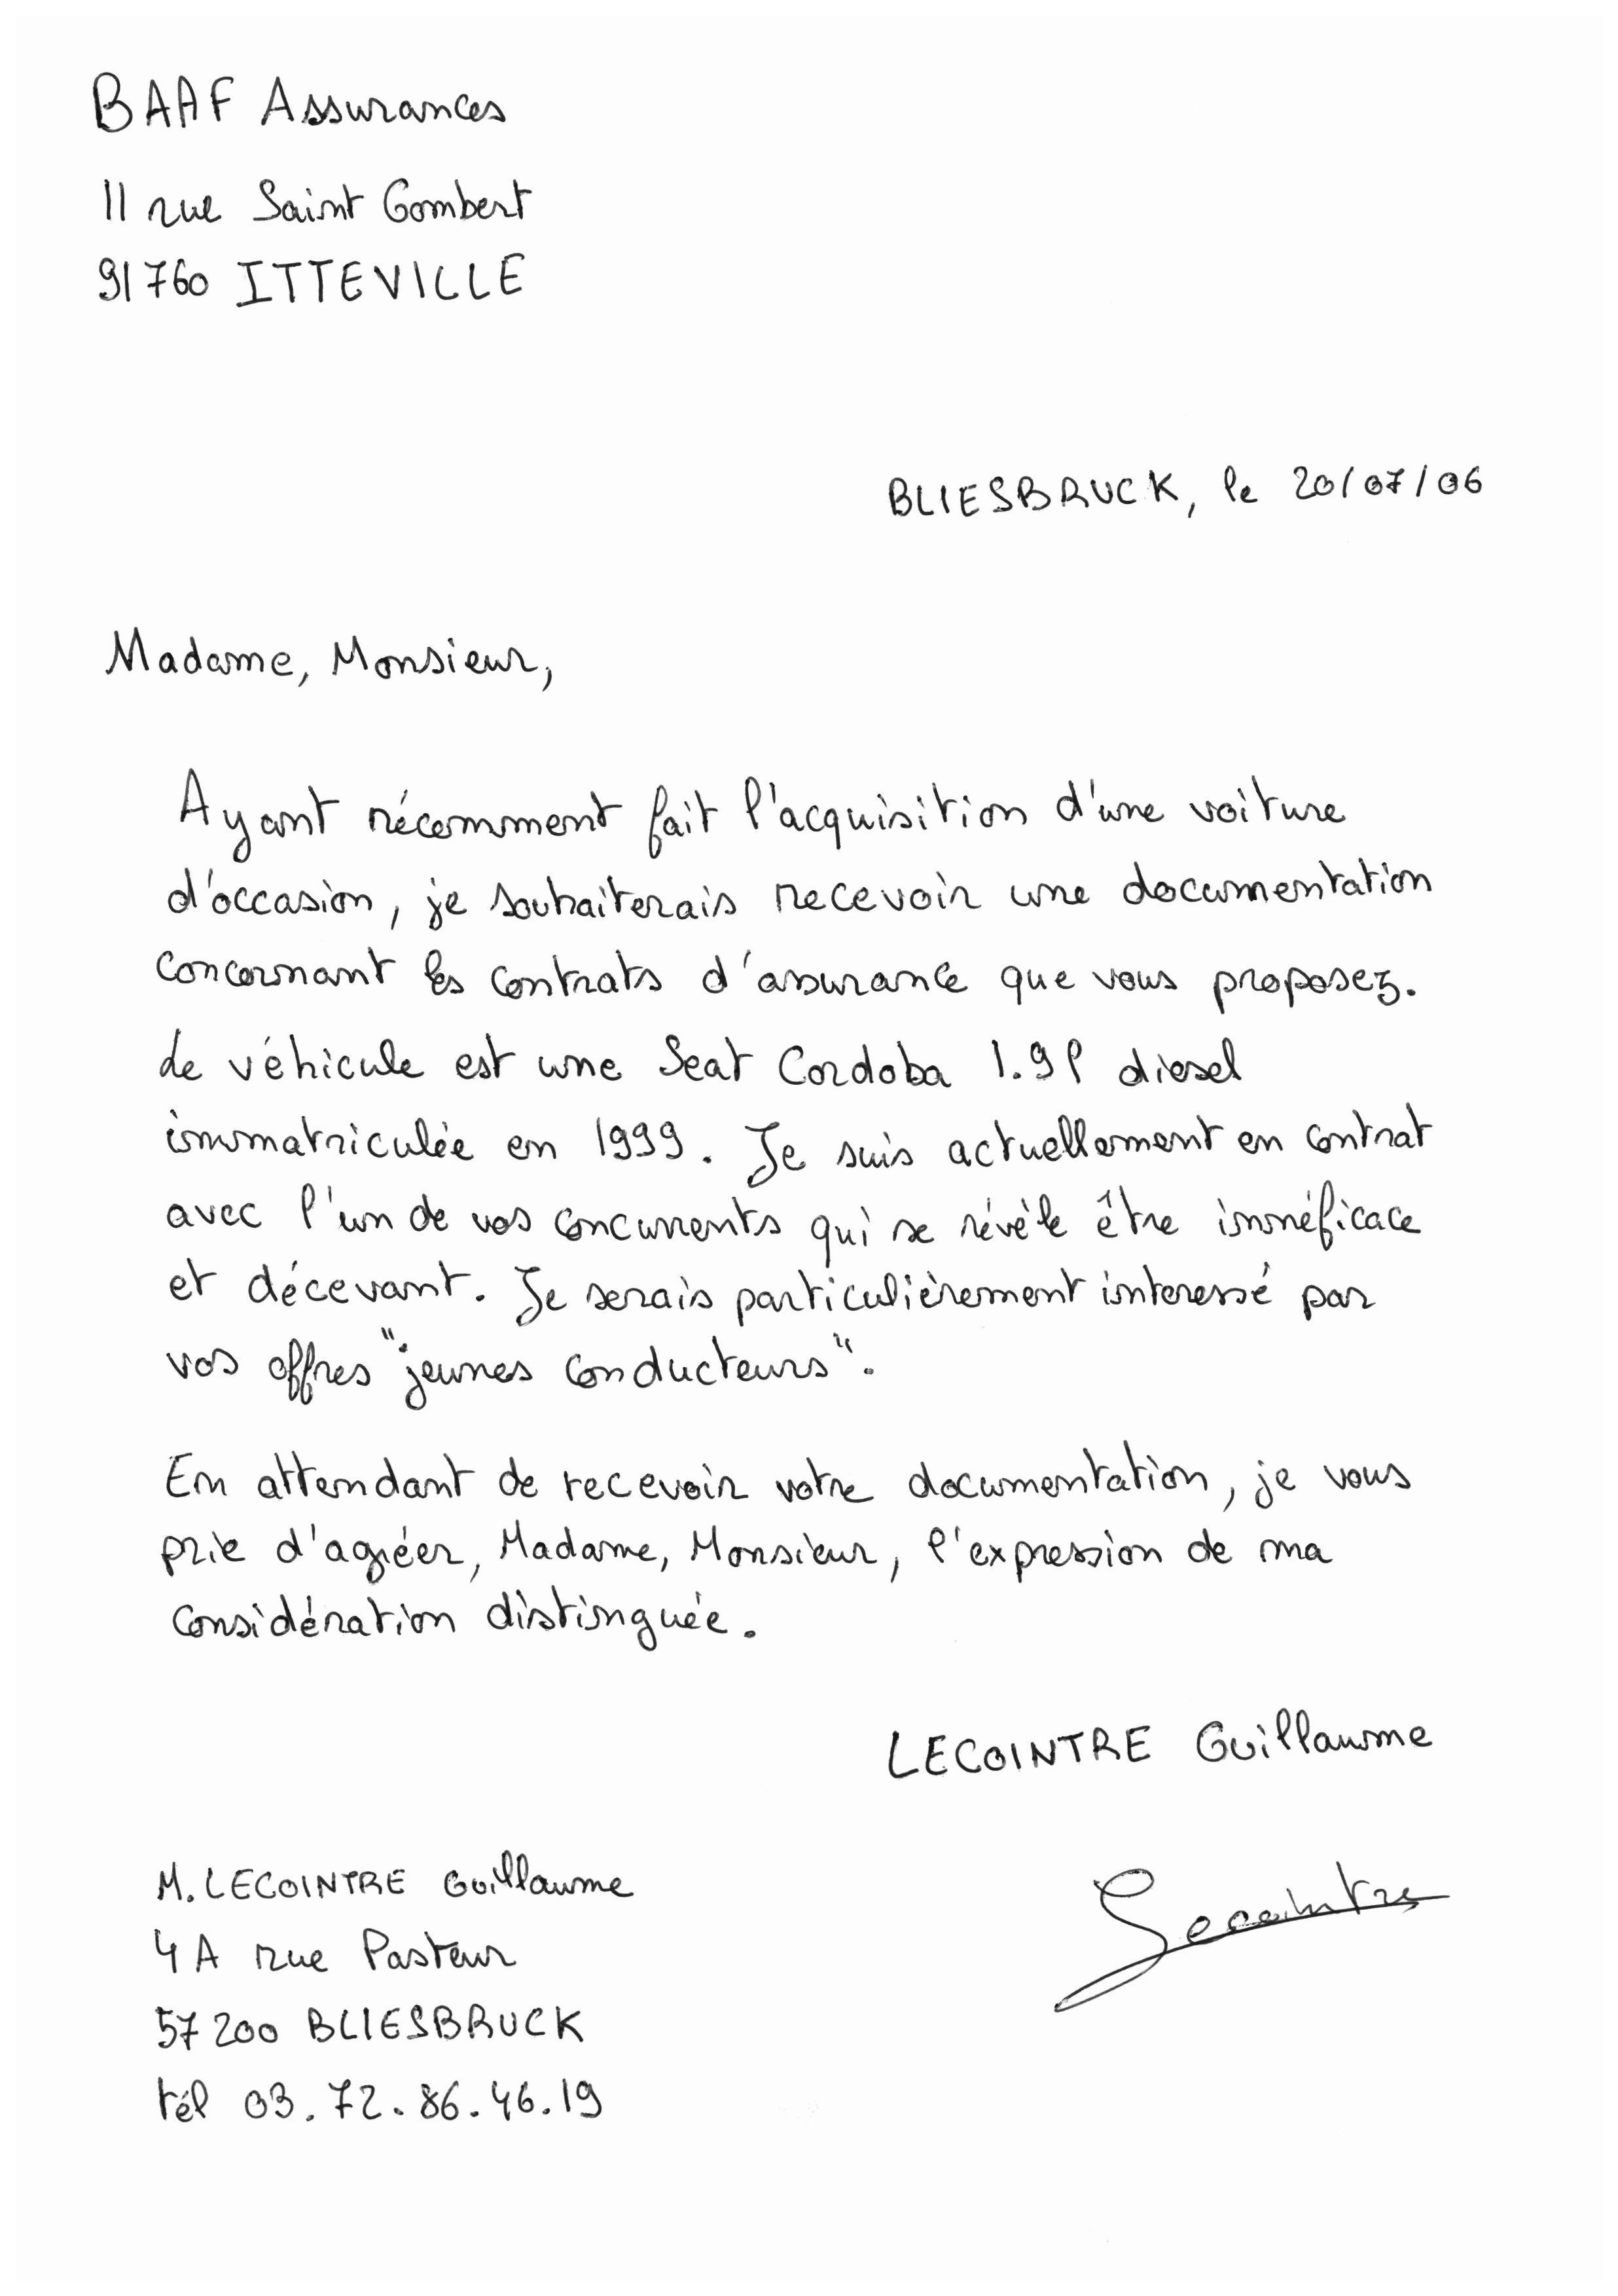 BAAF Assurances
11 rue Saint Gombert
91760 ITTEVILLE
BLIESBRUCK, le 20/07/06
Madame, Monsieur,
Ayant récemment fait l'acquisition d'une voiture
d'occasion, je souhaiterais recevoir une documentation
concernant les contrats d'assurance que vous proposez.
Le véhicule est une Seat Cordoba 1.9l diesel
immatriculée en 1999. Je suis actuellement en contrat
avec l'un de vos concurrents qui se révèle être innéficace
et décevant. Je serais particulièrement interessé par
vos offres "jeunes conducteurs".
En attendant de recevoir votre documentation, je vous
prie d'agréer, Madame, Monsieur, l'expression de ma
considération distinguée.
LECOINTRE Guillaume
M. LECOINTRE Guillaume
4A rue Pasteur
57200 BLIESBRUCK
tél 03.72.86.46.19
Lecointre